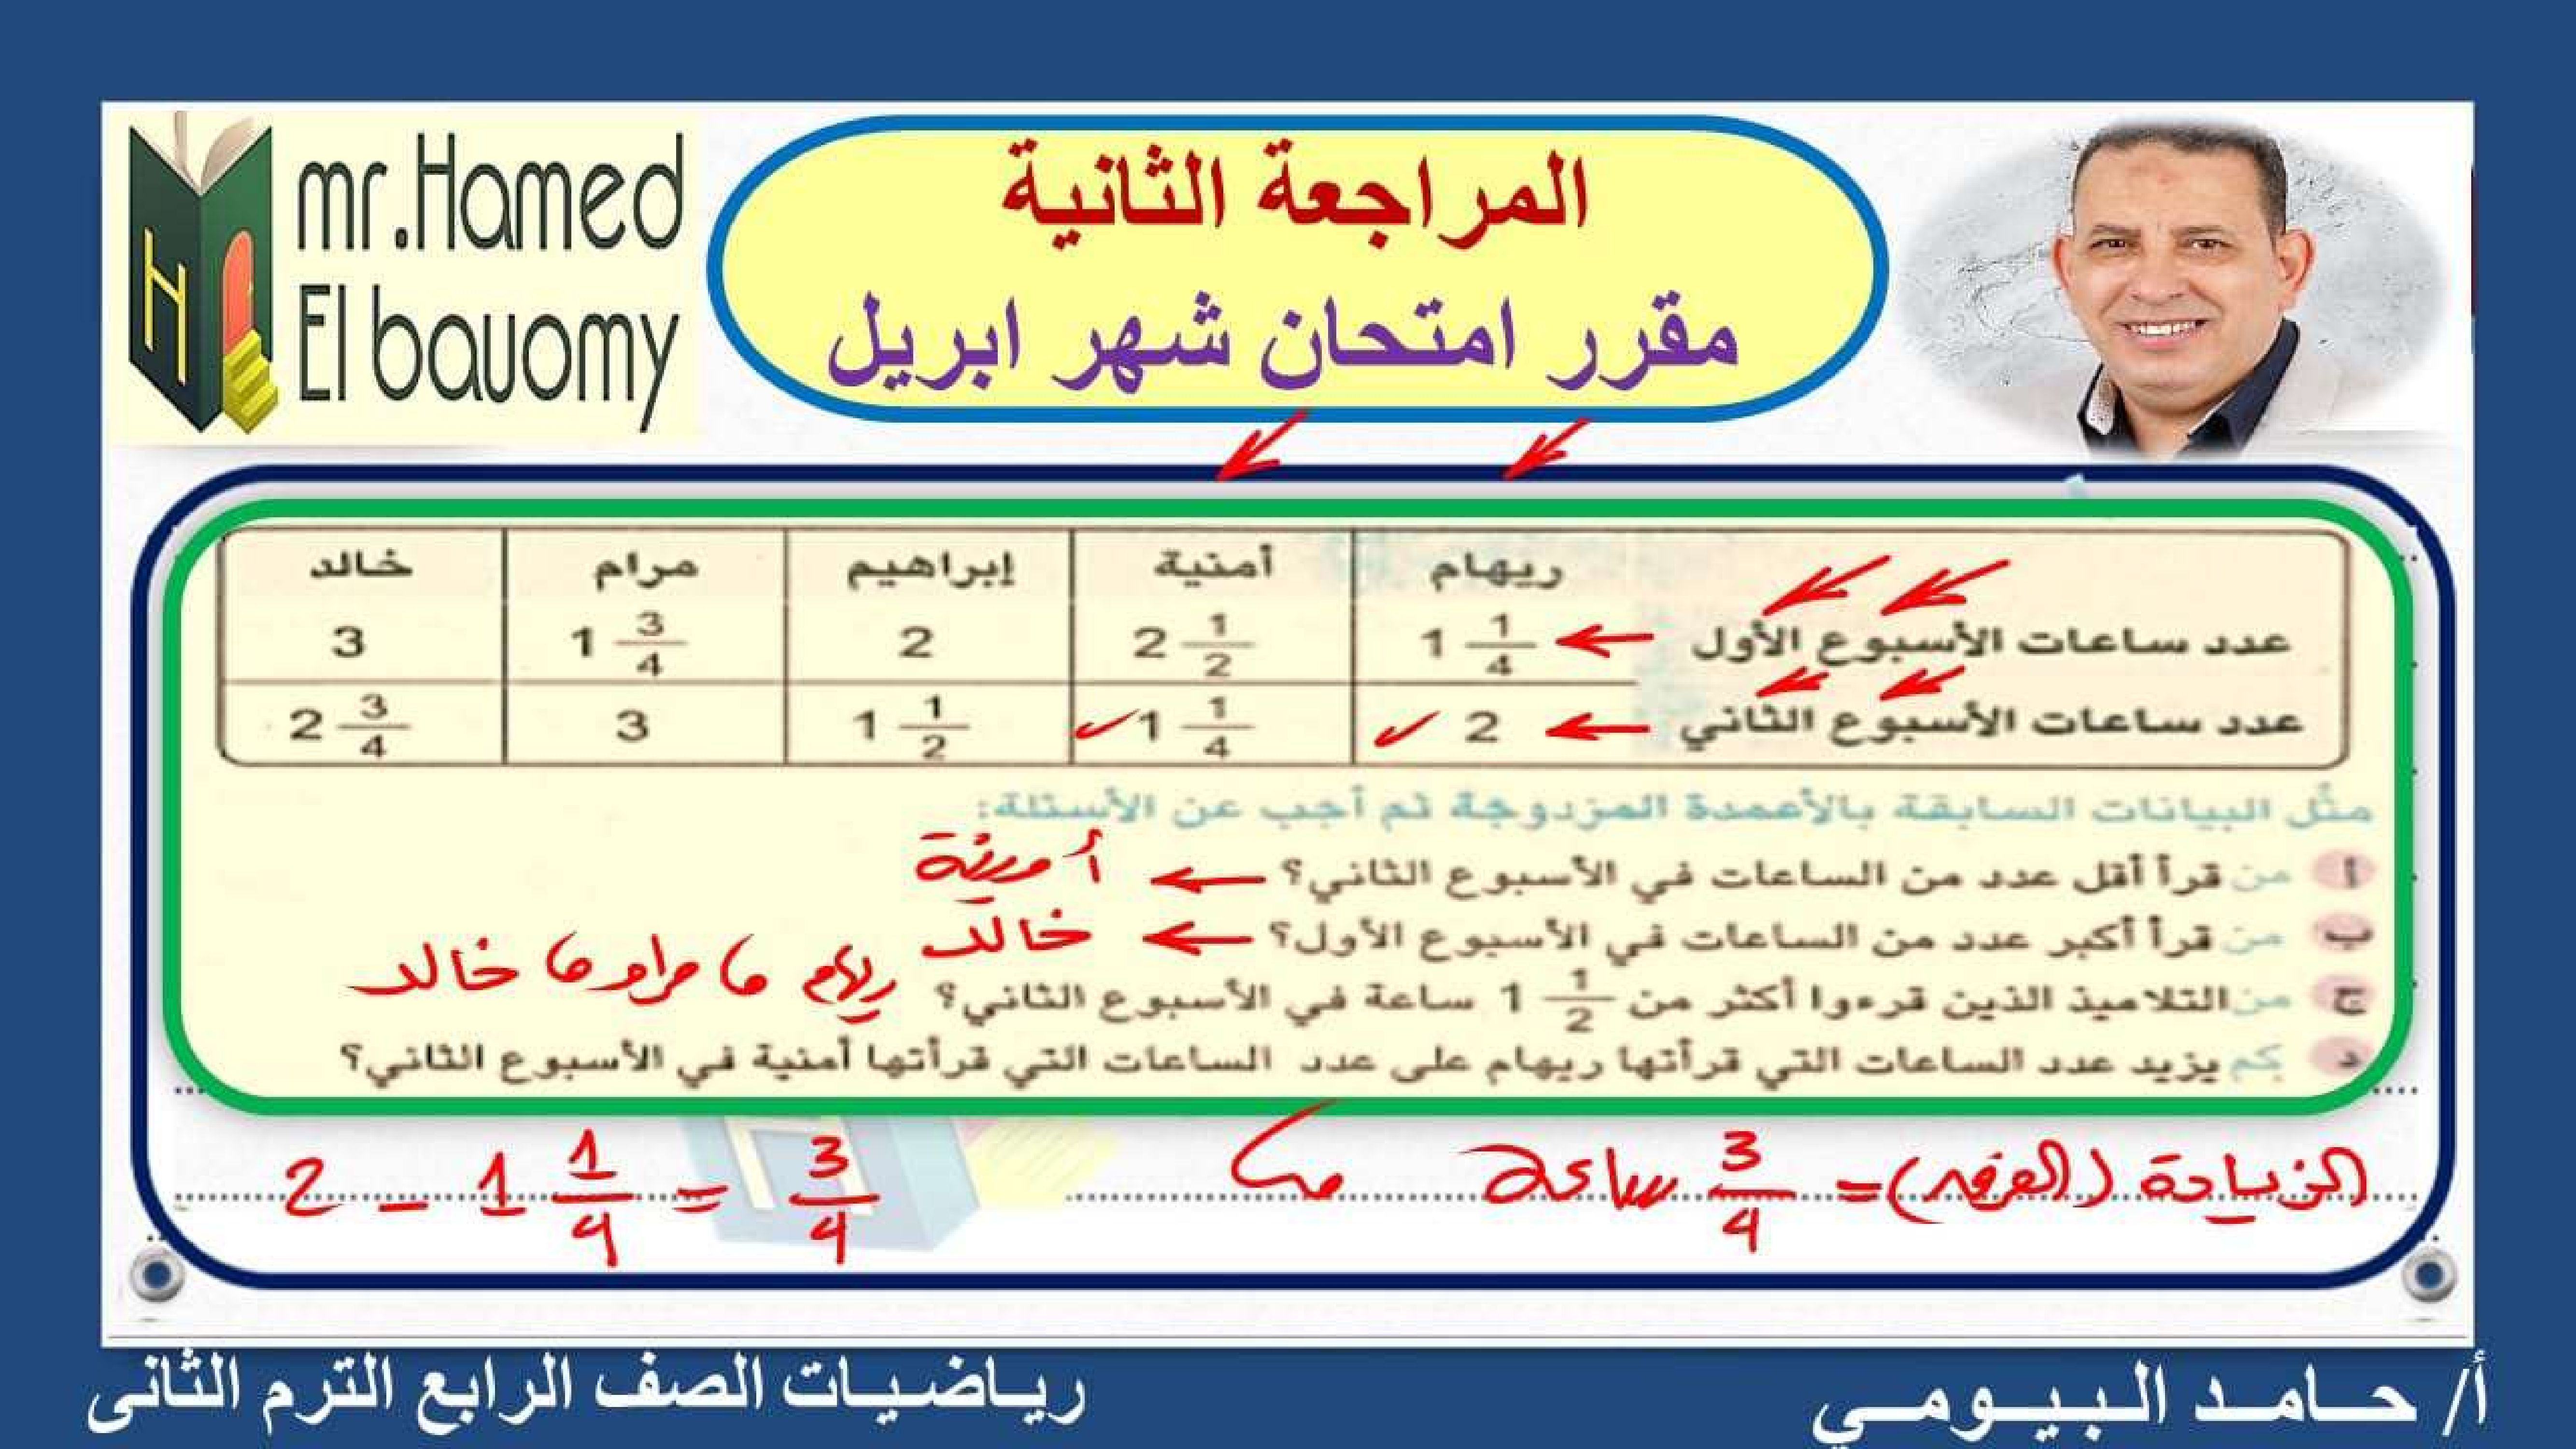 mr.Hamed
El bauomy
المراجعة الثانية
مقرر امتحان شهر ابريل
ريهام أمنية إبراهيم مرام خالد
عدد ساعات الأسبوع الأول 1 1/4 2 1/2 2 1 3/4 3
عدد ساعات الأسبوع الثاني 2 1 1/4 1 1/2 3 2 3/4
مثّل البيانات السابقة بالأعمدة المزدوجة ثم أجب عن الأسئلة:
أ من قرأ أقل عدد من الساعات في الأسبوع الثاني؟ ← أمنية
ب من قرأ أكبر عدد من الساعات في الأسبوع الأول؟ ← خالد
ج من التلاميذ الذين قرءوا أكثر من 1 1/2 ساعة في الأسبوع الثاني؟ ريهام ، مرام ، خالد
د كم يزيد عدد الساعات التي قرأتها ريهام على عدد الساعات التي قرأتها أمنية في الأسبوع الثاني؟
الزيادة (الفرق) = 3/4 ساعة
2 - 1 1/4 = 3/4
أ/ حـامـد الـبـيـومـي
ريـاضـيـات الصف الرابع الترم الثانى